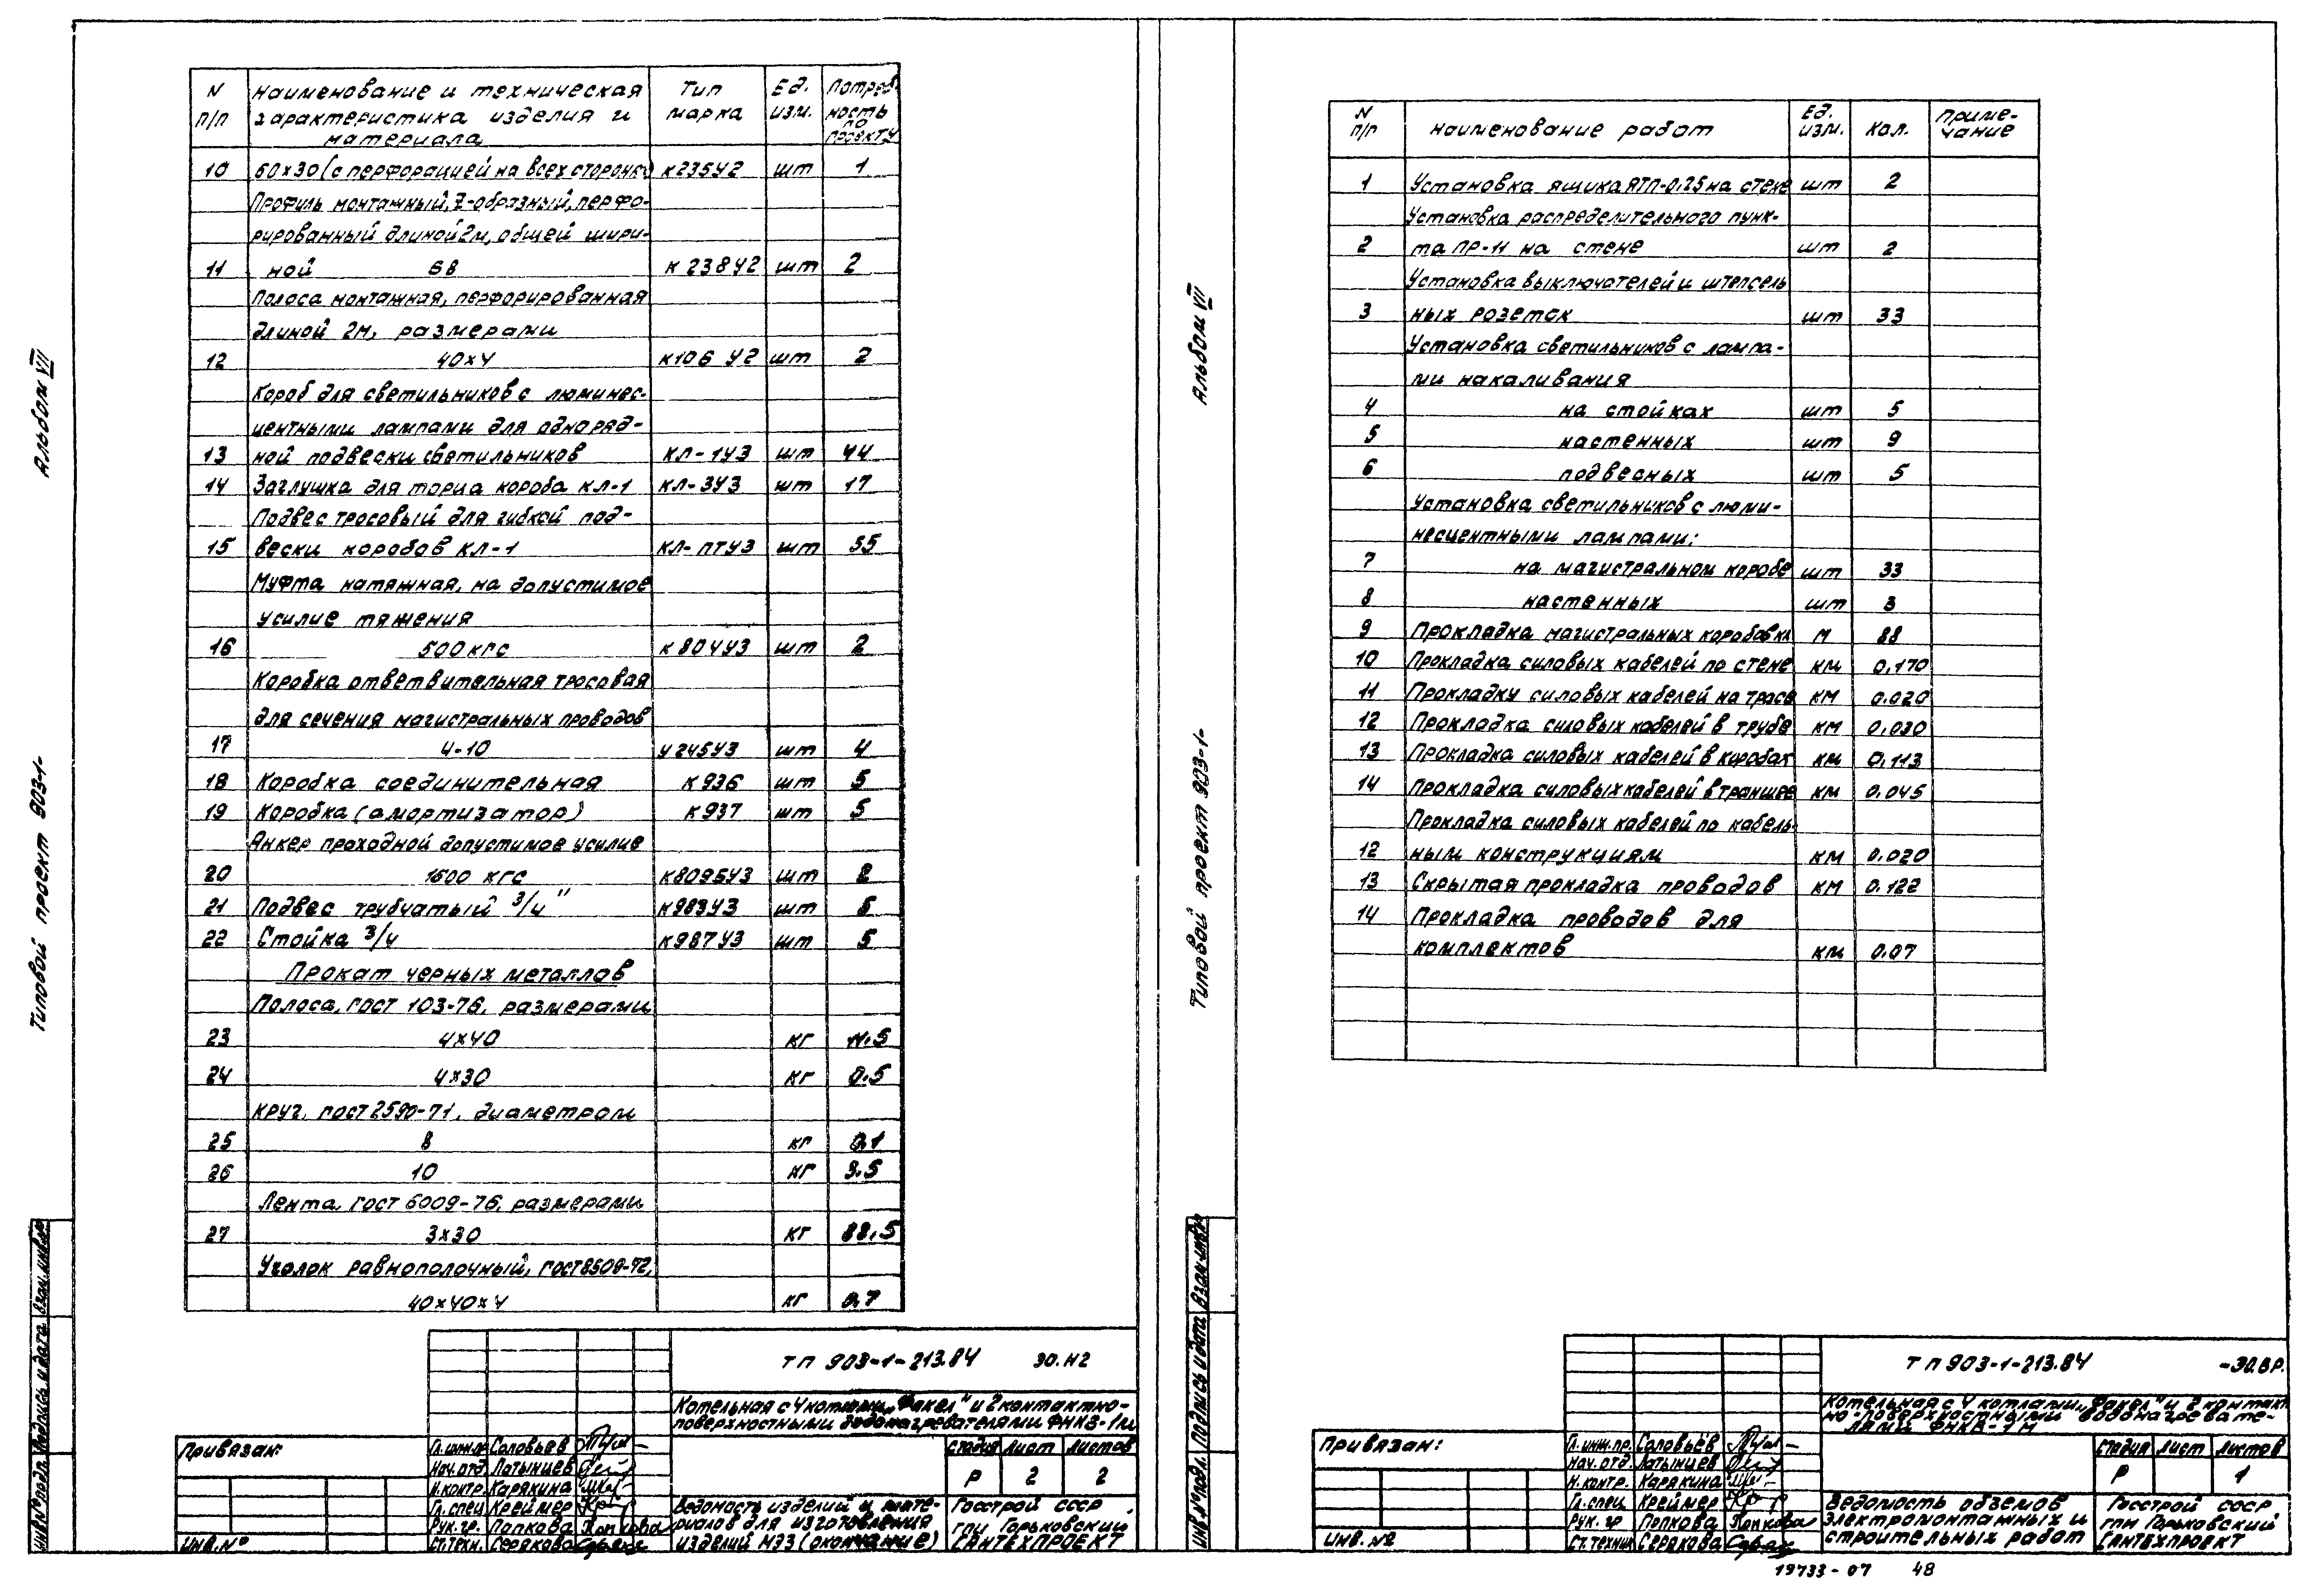 Альбом VII
Типовой проект 903-1-
Инв.№ подл. Подпись и дата Взам.инв.№
N п/п
Наименование и техническая характеристика изделия и материала
Тип марка
Ед. изм.
Потреб- ность по проекту
10 60х30 (с перфорацией на всех сторонах) К235У2 шт 1
Профиль монтажный, Z-образный, перфо-
рированный длиной 2м, общей шири-
11 ной 68 К238У2 шт 2
Полоса монтажная, перфорированная
длиной 2м, размерами
12 40х4 К106 У2 шт 2
Короб для светильников с люминес-
центными лампами для одноряд-
13 ной подвески светильников КЛ-1У3 шт 44
14 Заглушка для торца короба КЛ-1 КЛ-3У3 шт 17
Подвес тросовый для гибкой под-
15 вески коробов КЛ-1 КЛ-ПТУ3 шт 35
Муфта натяжная, на допустимое
усилие тяжения
16 500 кгс К804У3 шт 2
Коробка ответвительная тросовая
для сечения магистральных проводов
17 4-10 У245У3 шт 4
18 Коробка соединительная К936 шт 5
19 Коробка (амортизатор) К937 шт 5
Анкер проходной допустимое усилие
20 1600 кгс К809БУ3 шт 2
21 Подвес трубчатый 3/4" К983У3 шт 5
22 Стойка 3/4 К987У3 шт 5
Прокат черных металлов
Полоса, ГОСТ 103-76, размерами
23 4х40 кг 11.5
24 4х30 кг 0.5
Круг, ГОСТ 2590-71, диаметром
25 8 кг 0.1
26 10 кг 3.5
Лента, ГОСТ 6009-76, размерами
27 3х30 кг 88.5
Уголок равнополочный, ГОСТ 8509-72,
40х40х4 кг 0.7
ТП 903-1-213.84 ЭО.Н2
Котельная с 4 котлами „Факел" и 2 контактно-
поверхностными водонагревателями ФНКВ-1м
Привязан:
Инв.№
Гл.инж.пр. Соловьёв
Нач.отд. Латынцев
Н.контр. Карякина
Гл.спец Креймер
Рук.гр. Попкова
Ст.техн. Серякова
Стадия Лист Листов
Р 2 2
Ведомость изделий и мате-
риалов для изготовления
изделий МЭЗ (окончание)
Госстрой СССР
ГПИ Горьковский
Сантехпроект
Альбом VII
Типовой проект 903-1-
Инв.№ подл. Подпись и дата Взам.инв.№
N п/п
Наименование работ
Ед. изм.
Кол.
Приме- чание
1 Установка ящика ЯТП-0.25 на стене шт 2
Установка распределительного пунк-
2 та ПР-11 на стене шт 2
Установка выключателей и штепсель
3 ных розеток шт 33
Установка светильников с лампа-
ми накаливания
4 на стойках шт 5
5 настенных шт 9
6 подвесных шт 5
Установка светильников с люми-
несцентными лампами:
7 на магистральном коробе шт 33
8 настенных шт 3
9 Прокладка магистральных коробов КЛ м 88
10 Прокладка силовых кабелей по стене км 0.170
11 Прокладку силовых кабелей на тросе км 0.020
12 Прокладка силовых кабелей в трубе км 0.030
13 Прокладка силовых кабелей в коробах км 0.113
14 Прокладка силовых кабелей в траншее км 0.045
Прокладка силовых кабелей по кабель-
12 ным конструкциям км 0.020
13 Скрытая прокладка проводов км 0.122
14 Прокладка проводов для
комплектов км 0.07
ТП 903-1-213.84 -ЭО.ВР.
Котельная с 4 котлами „Факел" и 2 контакт
но-поверхностными водонагревате-
лями ФНКВ-1М
Привязан:
Инв.№
Гл.инж.пр. Соловьёв
Нач.отд. Латынцев
Н.контр. Карякина
Гл.спец. Креймер
Рук.гр Попкова
Ст.техник Серякова
Стадия Лист Листов
Р 1
Ведомость объемов
электромонтажных и
строительных работ
Госстрой СССР
ГПИ Горьковский
Сантехпроект
19733-07 48